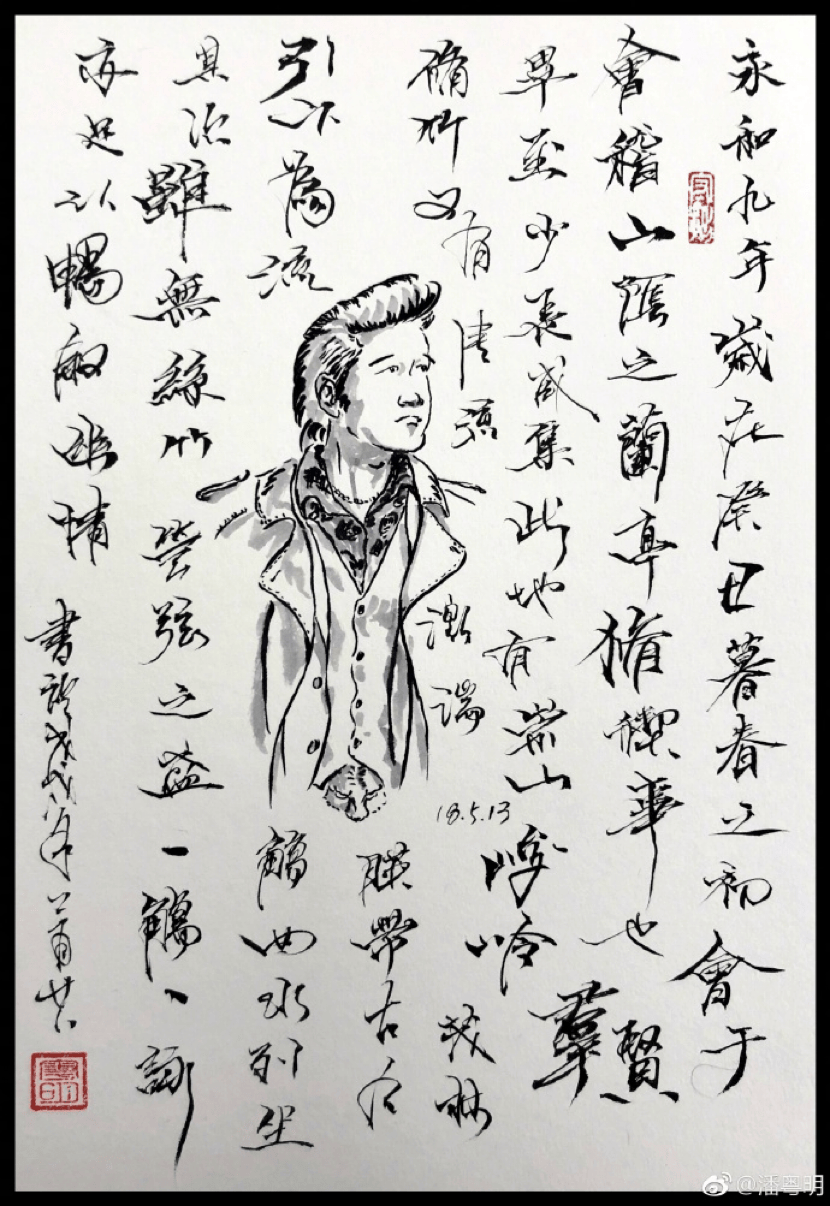 永和九年歲在癸丑暮春之初會于
會稽山陰之蘭亭脩禊事也羣賢
畢至少長咸集此地有崇山峻岭茂林
脩竹又有清流激湍
18.5.13
映帶左右
引以為流
觴曲水列坐
其次
雖無絲竹管弦之盛一觴一詠
亦足以暢敘幽情
書於戊戌年
@潘粤明